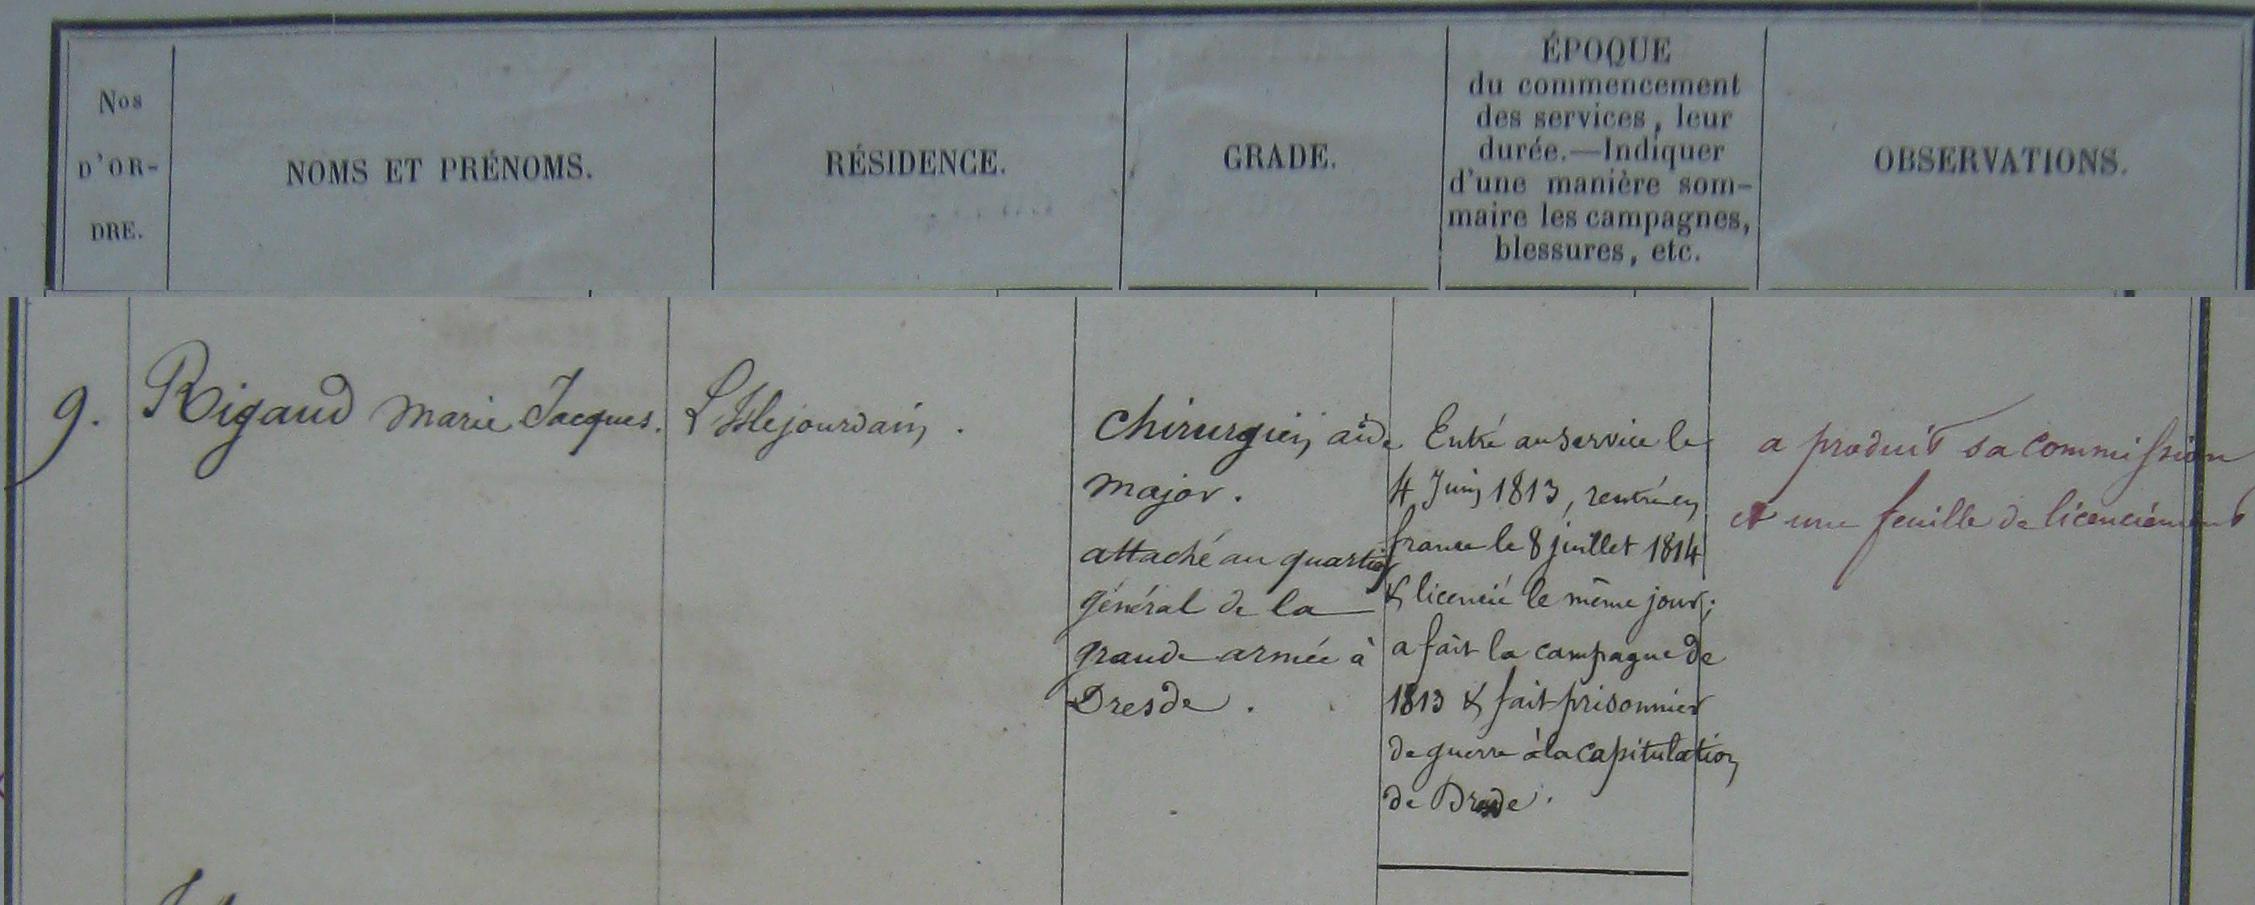 Nos
D'OR-
DRE.
NOMS ET PRÉNOMS.
RÉSIDENCE.
GRADE.
ÉPOQUE
du commencement
des services, leur
durée.—Indiquer
d'une manière som-
maire les campagnes,
blessures, etc.
OBSERVATIONS.
9.
Rigaud Marie Jacques.
L'Islejourdain.
Chirurgien aide
major.
attaché au quartier
général de la
grande armée à
Dresde.
Entré au service le
4 Juin 1813, rentré en
france le 8 juillet 1814
& licencié le même jour;
a fait la campagne de
1813 & fait prisonnier
de guerre à la capitulation
de Dresde.
a produit sa commission
et une feuille de licenciement